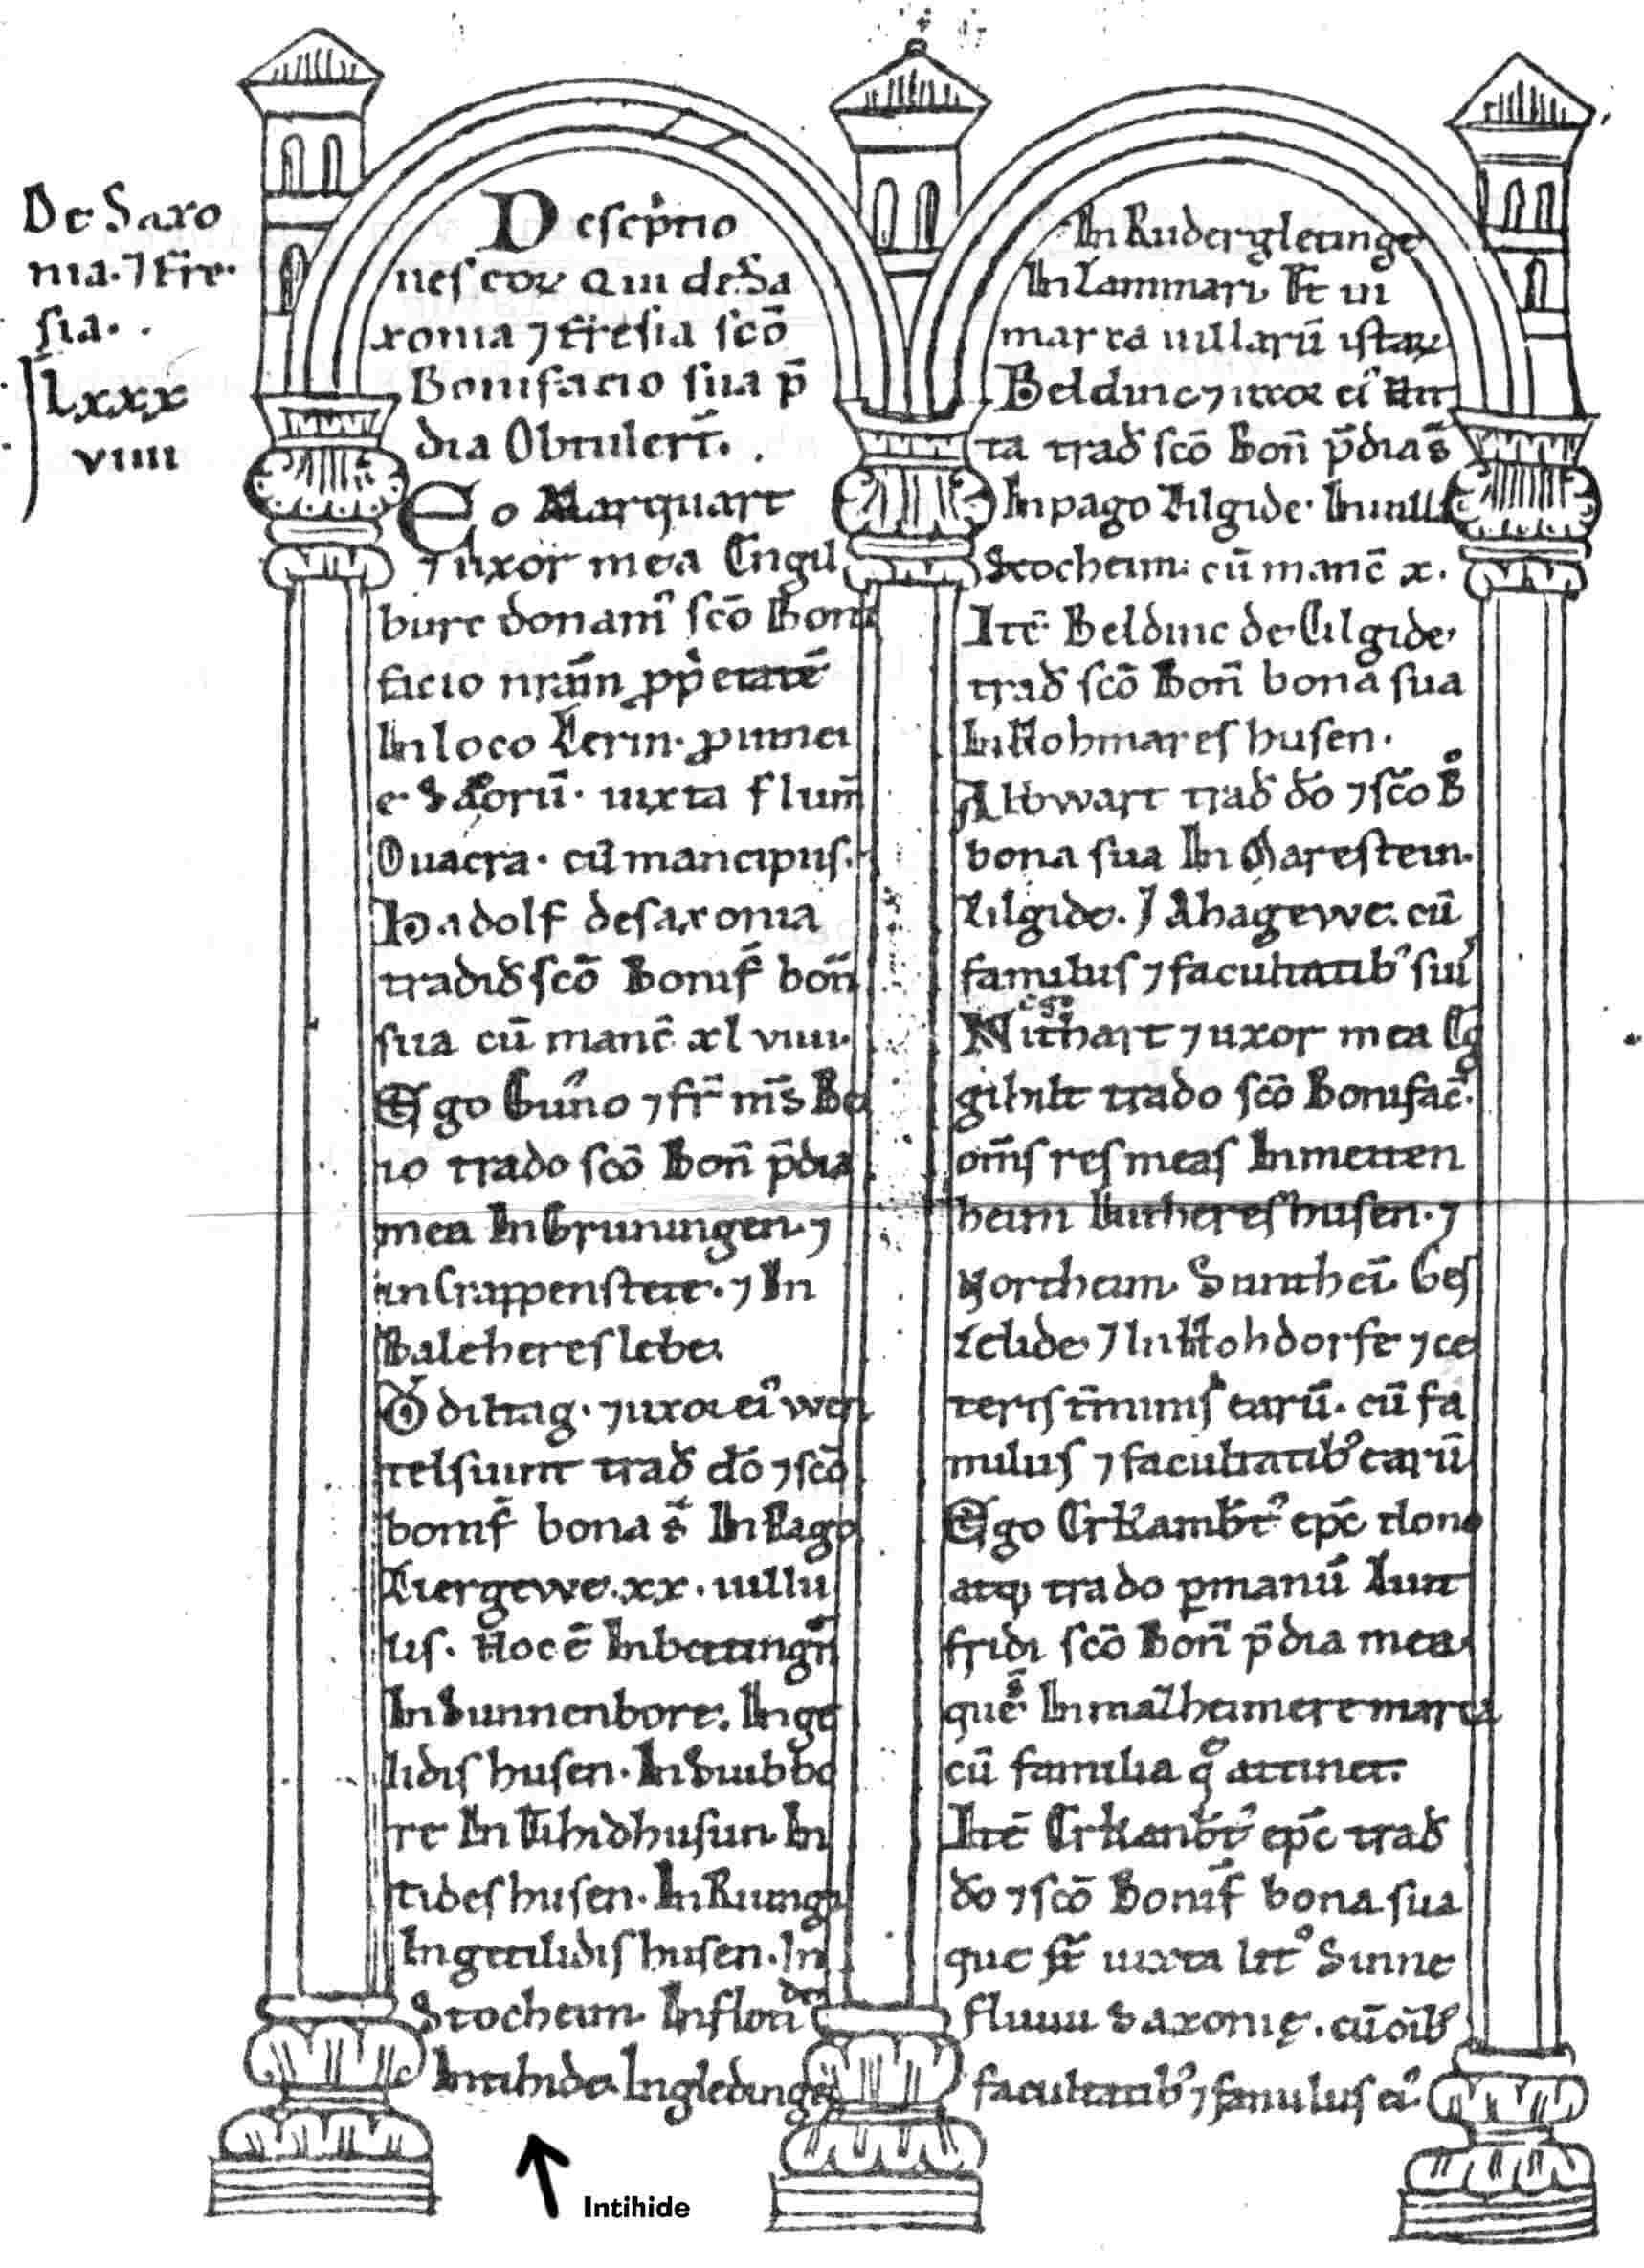 De Saxo
nia· ⁊ Fre·
sia· .
Lxxx
viiii
Descͥptio
nes eoꝝ Qui de Sa
xonia ⁊ Fresia scō
Bonifacio sua p̄
dia Obtuler̄t· .
Eo Marquart
⁊ uxor mea Engil
burc donamꝰ scō Boni
facio nr̄am ppͥetatē
In loco
Saxorū· iuxta flum̄
Uuacra· cū mancipiis·
Hadolf de saxonia
tradiđ scō Bonif̄ bon̄
sua cū manc̄ xl viiii·
Ego Gūno ⁊ fr̄ m̄s Bo
io trado scō Bon̄ p̄dia
mea In Gruningen· ⁊
in Crappenstete· ⁊ In
Baleheresleben
Odiltag· ⁊ uxor eiꝰ wen
telsuint trađ dō ⁊ scō
bonif̄ bona s̄ In Pago
xx· uillu
lis· Hoc ē In bettingn̄
In Sunnenbore· In ge
lidis husen· In Suibbo
re In Tihidhusun In
tides husen· In Riungi
In getilidis husen· In
Stocheim· In flon̄ den
In tihide· In gledinge
In Rudergletinge
In Lammari Et ui
marca uillarū istaꝝ
Beldinc ⁊ uxor eiꝰ
ta trađ scō Bon̄ p̄dia s̄
In pago Zilgide· In uilla
Stocheim· cū manc̄ x·
Itē Beldinc de Cilgide
trađ scō Bon̄ bona sua
In Hohmares husen·
Altwart trađ đo ⁊ scō B̊
bona sua In Marestein·
Zilgide· ⁊ Ahagewe· cū
famulis ⁊ facultatibꝰ suiꝰ
ego
Nithart ⁊ uxor mea Eg
gihilt trado scō Bonifac̄·
om̄s res meas In metten
heim Lutheres husen· ⁊
Northeim Suntheī Ges
Zelide ⁊ In Hohdorfe ⁊ ce
teris t̄minis earū· cū fa
mulis ⁊ facultatibꝰ earū
Ego Erkambt̄ꝰ epc̄ dono
atqꝫ trado p manū Lunt
fridi scō Bon̄ p̄dia mea
quę s̄ In malheimere marca
cū familia q̊ attinet·
Itē Erkanbt̄ꝰ epc̄ trađ
đo ⁊ scō Bonif̄ bona sua
que s̄t iuxta litꝰ Sinne
fluuii Saxonię· cū oīb'
facultatibꝰ ⁊ famulis eiꝰ·
Intihide